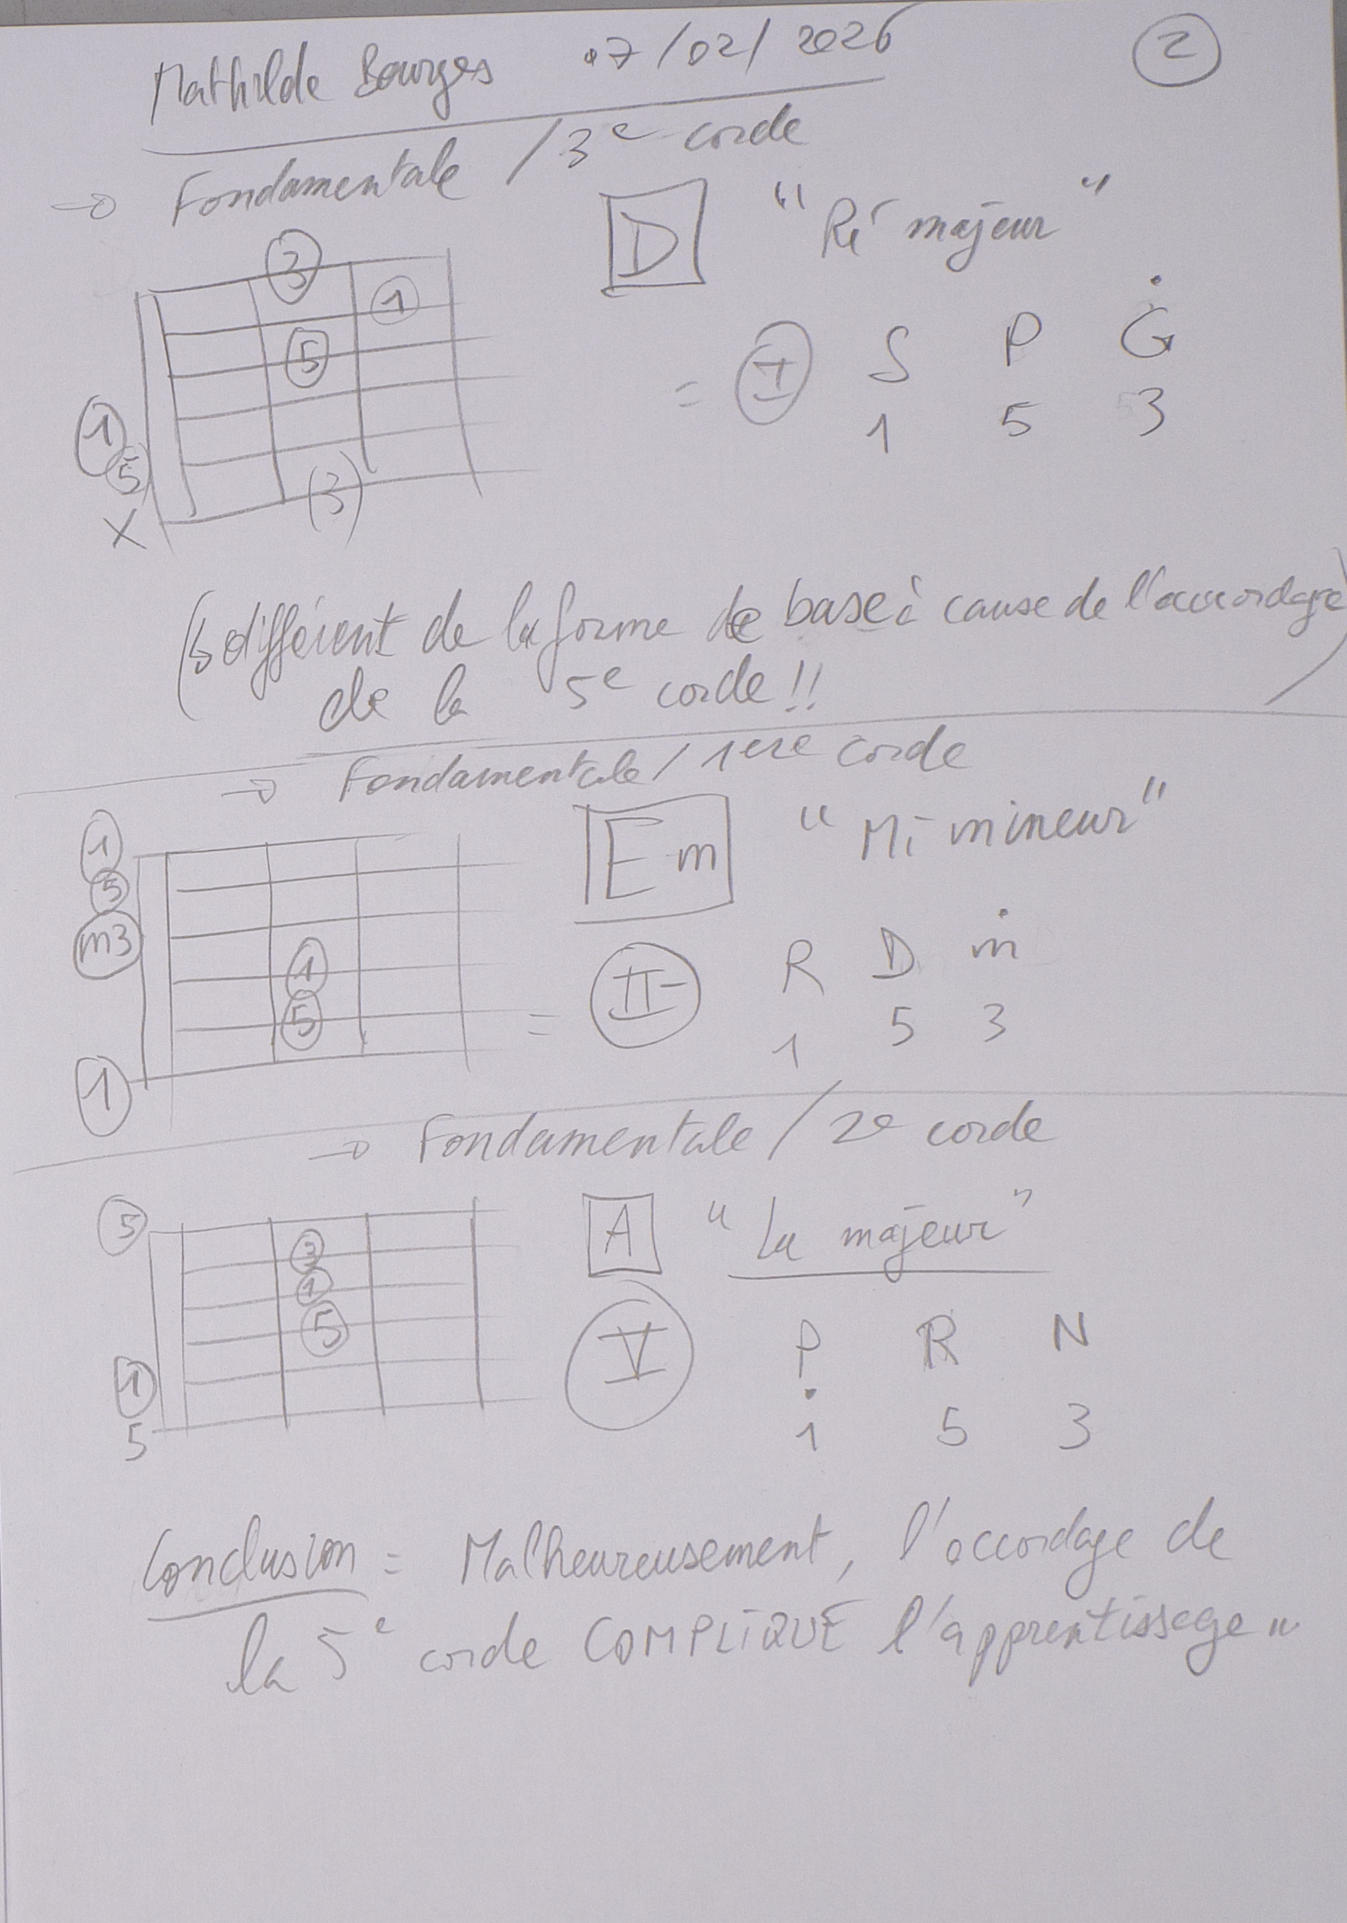 Mathilde Bourges 07/02/2026 2
→ Fondamentale / 3e corde
D "Ré majeur"
3
1
5
1
5
X (3)
= I S P Ġ
1 5 3
(↳ différent de la forme de base à cause de l'accordage
de la 5e corde !!)
→ Fondamentale / 1ere corde
Em "Mi mineur"
1
5
m3
1
5
1
= II- R D ṁ
1 5 3
→ Fondamentale / 2e corde
A "La majeur"
5
3
1
5
1
5
V Ṗ R N
1 5 3
Conclusion = Malheureusement, l'accordage de
la 5e corde COMPLIQUE l'apprentissage